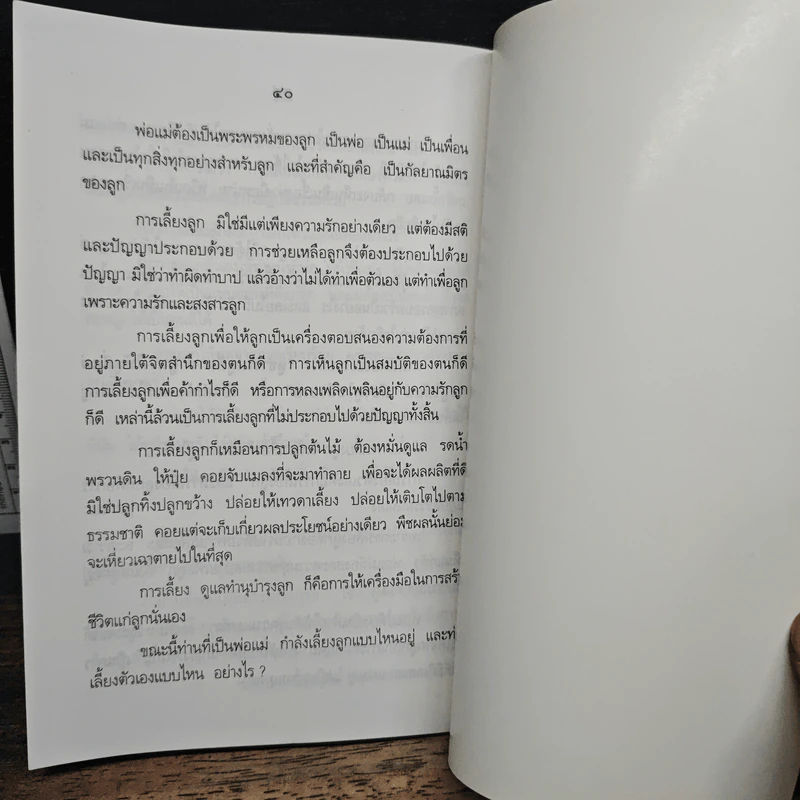 ๔๐
พ่อแม่ต้องเป็นพระพรหมของลูก เป็นพ่อ เป็นแม่ เป็นเพื่อน
และเป็นทุกสิ่งทุกอย่างสำหรับลูก และที่สำคัญคือ เป็นกัลยาณมิตร
ของลูก
การเลี้ยงลูก มิใช่มีแต่เพียงความรักอย่างเดียว แต่ต้องมีสติ
และปัญญาประกอบด้วย การช่วยเหลือลูกจึงต้องประกอบไปด้วย
ปัญญา มิใช่ว่าทำผิดทำบาป แล้วอ้างว่าไม่ได้ทำเพื่อตัวเอง แต่ทำเพื่อลูก
เพราะความรักและสงสารลูก
การเลี้ยงลูกเพื่อให้ลูกเป็นเครื่องตอบสนองความต้องการที่
อยู่ภายใต้จิตสำนึกของตนก็ดี การเห็นลูกเป็นสมบัติของตนก็ดี
การเลี้ยงลูกเพื่อค้ากำไรก็ดี หรือการหลงเพลิดเพลินอยู่กับความรักลูก
ก็ดี เหล่านี้ล้วนเป็นการเลี้ยงลูกที่ไม่ประกอบไปด้วยปัญญาทั้งสิ้น
การเลี้ยงลูกก็เหมือนการปลูกต้นไม้ ต้องหมั่นดูแล รดน้ำ
พรวนดิน ให้ปุ๋ย คอยจับแมลงที่จะมาทำลาย เพื่อจะได้ผลผลิตที่ดี
มิใช่ปลูกทิ้งปลูกขว้าง ปล่อยให้เทวดาเลี้ยง ปล่อยให้เติบโตไปตาม
ธรรมชาติ คอยแต่จะเก็บเกี่ยวผลประโยชน์อย่างเดียว พืชผลนั้นย่อม
จะเหี่ยวเฉาตายไปในที่สุด
การเลี้ยง ดูแลทำนุบำรุงลูก ก็คือการให้เครื่องมือในการ
ชีวิตแก่ลูกนั่นเอง
ขณะนี้ท่านที่เป็นพ่อแม่ กำลังเลี้ยงลูกแบบไหนอยู่
เลี้ยงตัวเองแบบไหน อย่างไร ?